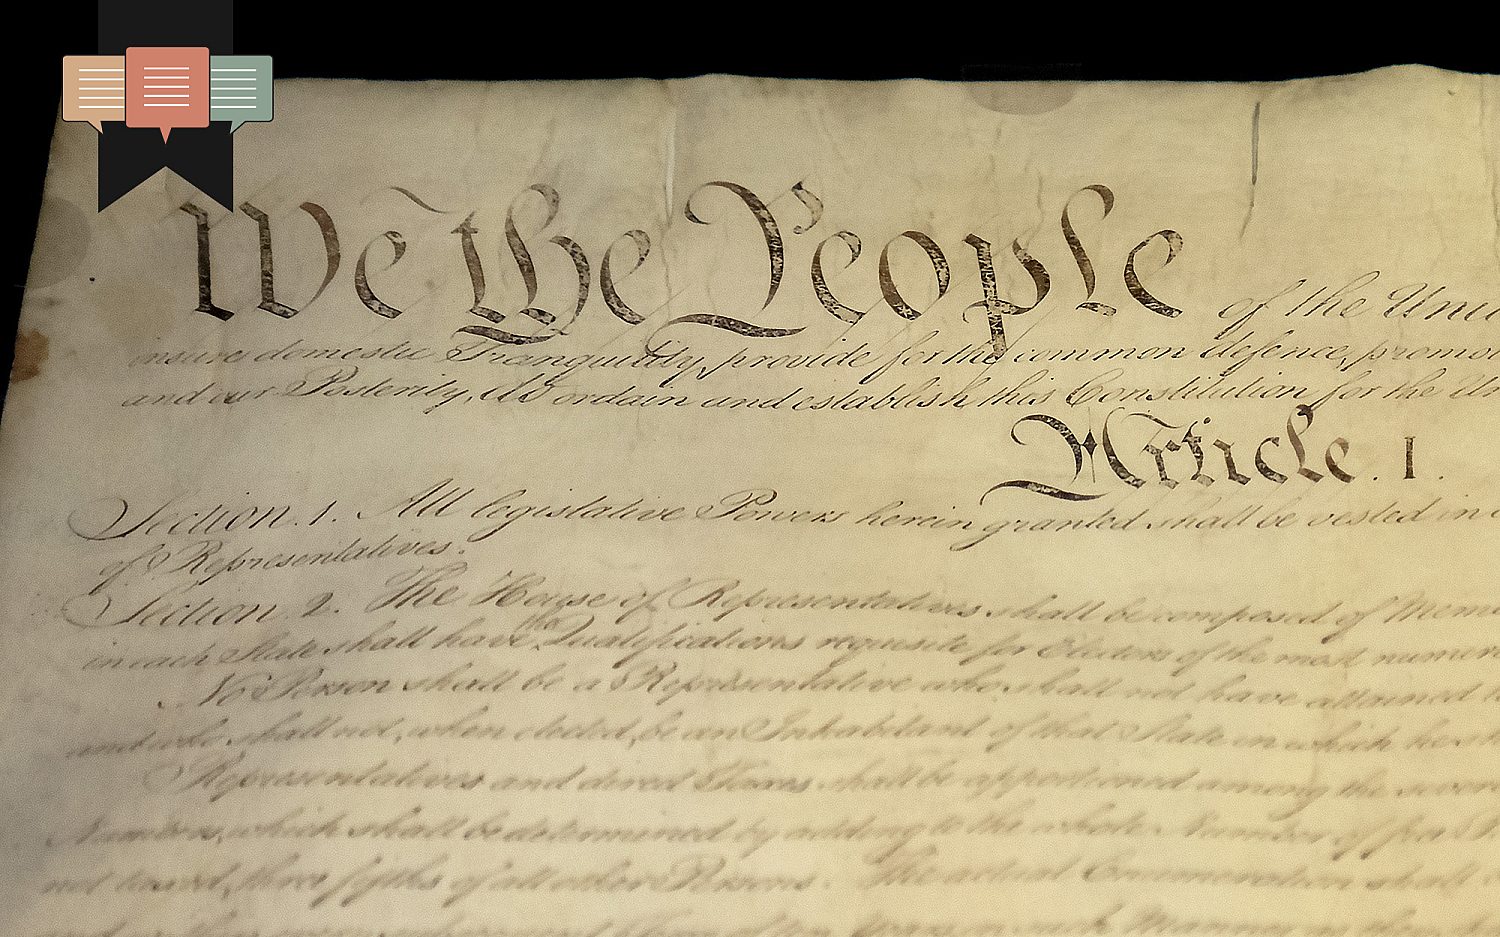 We the People of the Uni
insure domestic Tranquility, provide for the common defence, promo
and our Posterity, do ordain and establish this Constitution for the Un
Article. I.
Section. 1. All legislative Powers herein granted shall be vested in
of Representatives.
Section. 2. The House of Representatives shall be composed of Mem
in each State shall have the Qualifications requisite for Electors of the most numer
No Person shall be a Representative who shall not have attained t
and who shall not, when elected, be an Inhabitant of that State in which he
Representatives and direct Taxes shall be apportioned among the sever
Numbers, which shall be determined by adding to the whole Number of free
not taxed, three fifths of all other Persons. The actual Enumeration shall